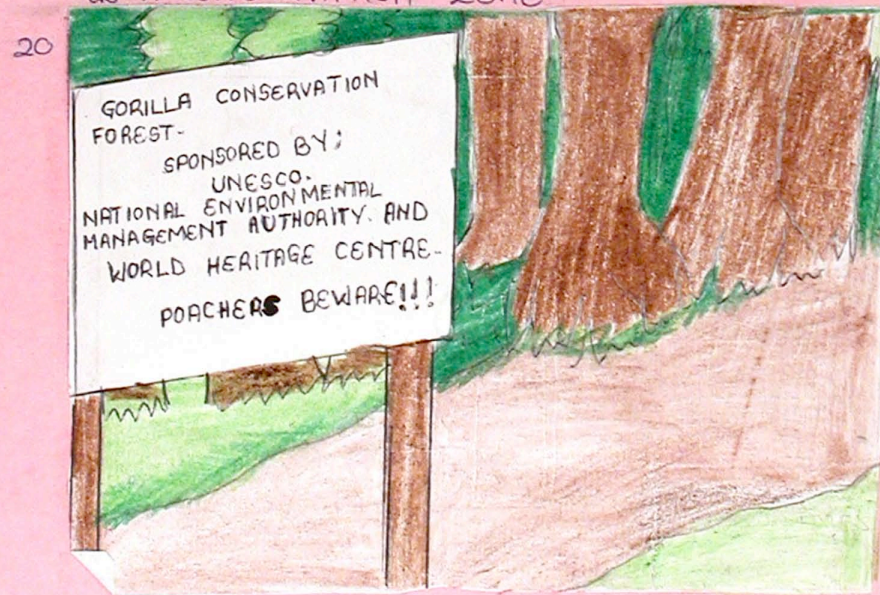 20
GORILLA CONSERVATION
FOREST-
SPONSORED BY;
UNESCO.
NATIONAL ENVIRONMENTAL
MANAGEMENT AUTHORITY. AND
WORLD HERITAGE CENTRE-
POACHERS BEWARE!!!